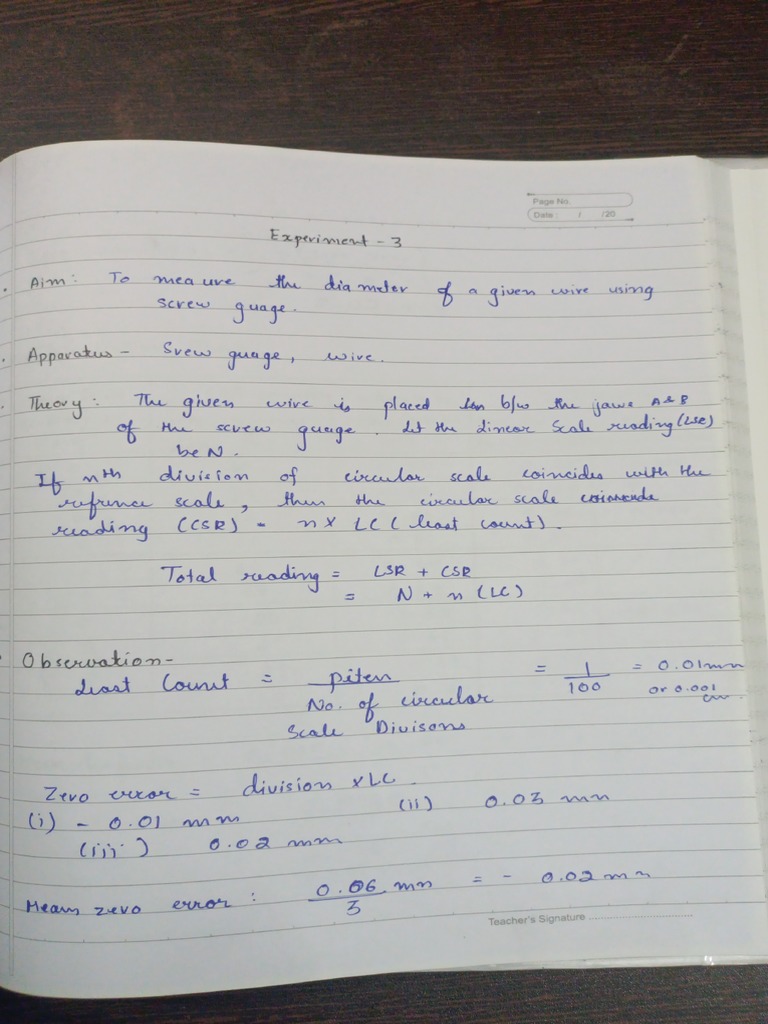 Page No.
Date : / /20
Experiment - 3
Aim: To meaure the diameter of a given wire using
screw guage.
Apparatus - Srew guage, wire.
Theory: The given wire is placed b/w the jaws A & B
of the screw guage. Let the Linear Scale reading (LSR)
be N.
If nth division of circular scale coincides with the
refrence scale, then the circular scale
reading (CSR) = n x LC (least count).
Total reading = LSR + CSR
= N + n (LC)
Observation-
Least Count = piten = 1 = 0.01mm
No. of circular 100 or 0.001
Scale Divisons cm
Zero error = division x LC
(i) - 0.01 mm (ii) 0.03 mm
(iii) 0.02 mm
Mean zero error : 0.06 mm = - 0.02 mm
3
Teacher's Signature